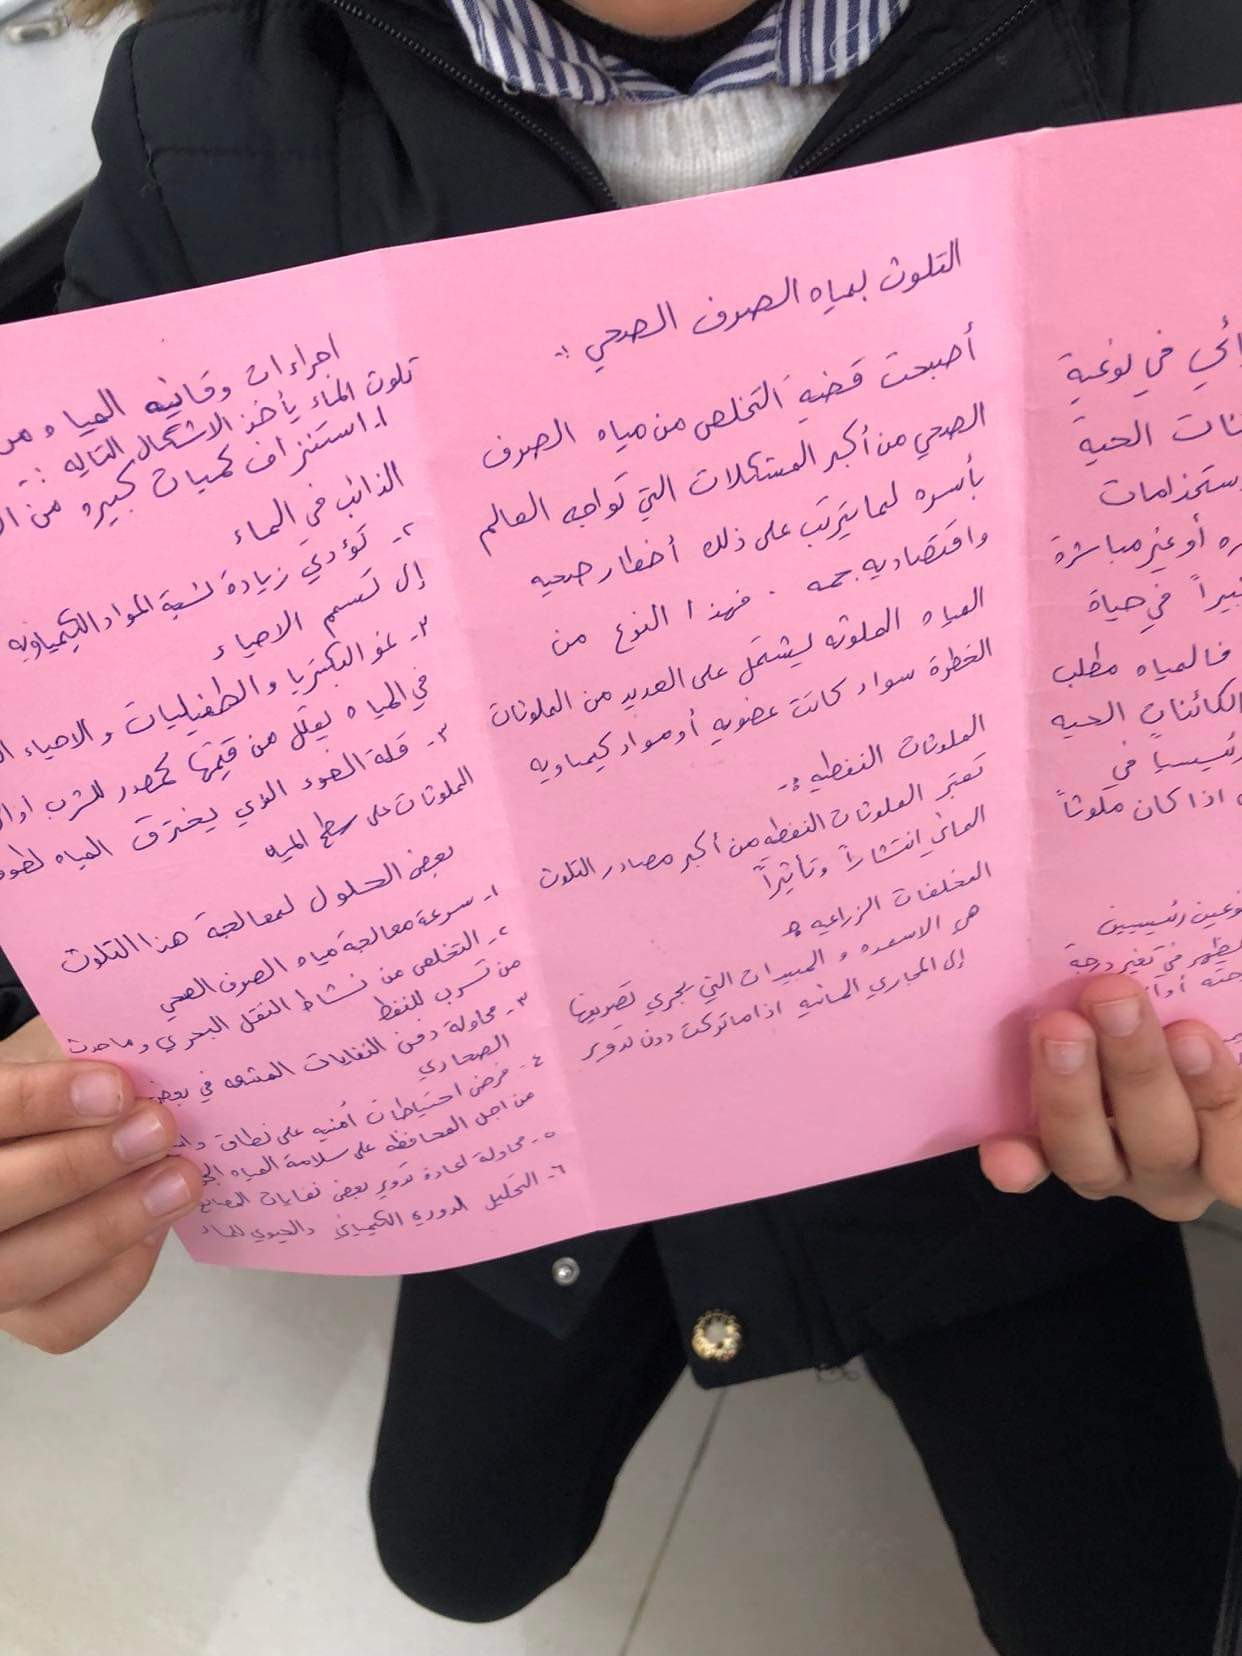 ئي في نوعية
ئنات الحية
ستخدامات
ره أو غير مباشرة
كبيراً في حياة
فالمياه مطلب
الكائنات الحيه
رئيسيا في
اذا كان ملوثاً
نوعين رئيسيين
يظهر في تغير درجة
التلوث بمياه الصرف الصحي :-
أصبحت قضية التخلص من مياه الصرف
الصحي من أكبر المشكلات التي تواجه العالم
بأسره لما يترتب على ذلك أخطار صحيه
واقتصاديه جمه . فهذا النوع من
المياه الملوثه يشتمل على العديد من الملوثات
الخطرة سواد كانت عضويه أو مواد كيماويه
الملوثات النفطيه :-
تعتبر الملوثات النفطه من أكبر مصادر التلوث
المائي انتشاراً وتأثيراً
المخلفات الزراعيه :-
هي الاسمده و المبيدات التي يجري تصريفها
إلى المجاري المائيه اذا ماتركت دون تدوير
اجراءات وقائيه المياه من
تلوث الماء يأخذ الاشكال التاليه :-
١- استنزاف كميات كبيره من
الذائب في الماء
٢- تؤدي زيادة نسبة المواد الكيمياويه
إلى تسمم الاحياء
٣- نمو البكتريا والطفيليات والاحياء
في المياه يقلل من قيمتها كمصدر للشرب او
٣- قلة الضوء الذي يخترق المياه لطوف
الملوثات على سطح المياه
بعض الحلول لمعالجة هذا التلوث
١- سرعة معالجة مياه الصرف الصحي
٢- التخلص من نشاط النقل البحري وماحدث
من تسرب للنفط
٣- محاولة دفن النفايات المشعه في بعض
الصحاري
٤- فرض احتياطات أمنيه على نطاق
من اجل المحافظه على سلامة المياه
٥- محاولة اعادة تدوير بعض نفايات المصانع
٦- التحليل الدوري الكيميائي والحيوي للماء